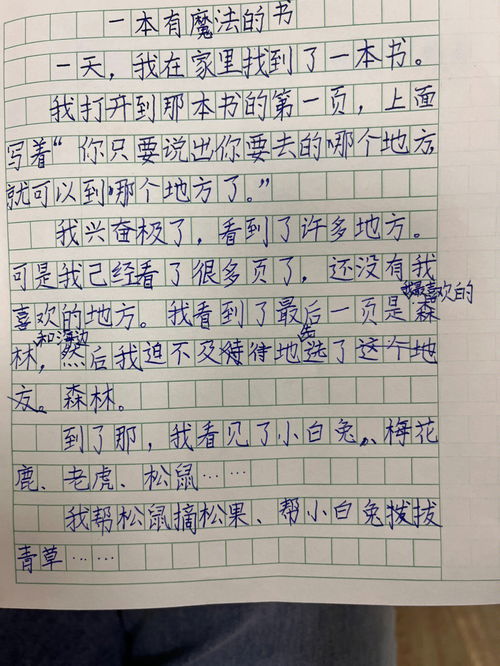 一本有魔法的书
一天，我在家里找到了一本书。
我打开到那本书的第一页，上面
写着“你只要说出你要去的哪个地方
就可以到哪个地方了。”
我兴奋极了，看到了许多地方。
可是我己经看了很多页了，还没有我
我最喜欢的
喜欢的地方。我看到了最后一页是森
和海边
先
林，然后我迫不及待待地选了这个地
方。森林。
到了那，我看见了小白兔、梅花
鹿、老虎、松鼠……
我帮松鼠摘松果、帮小白兔拨拔
青草……